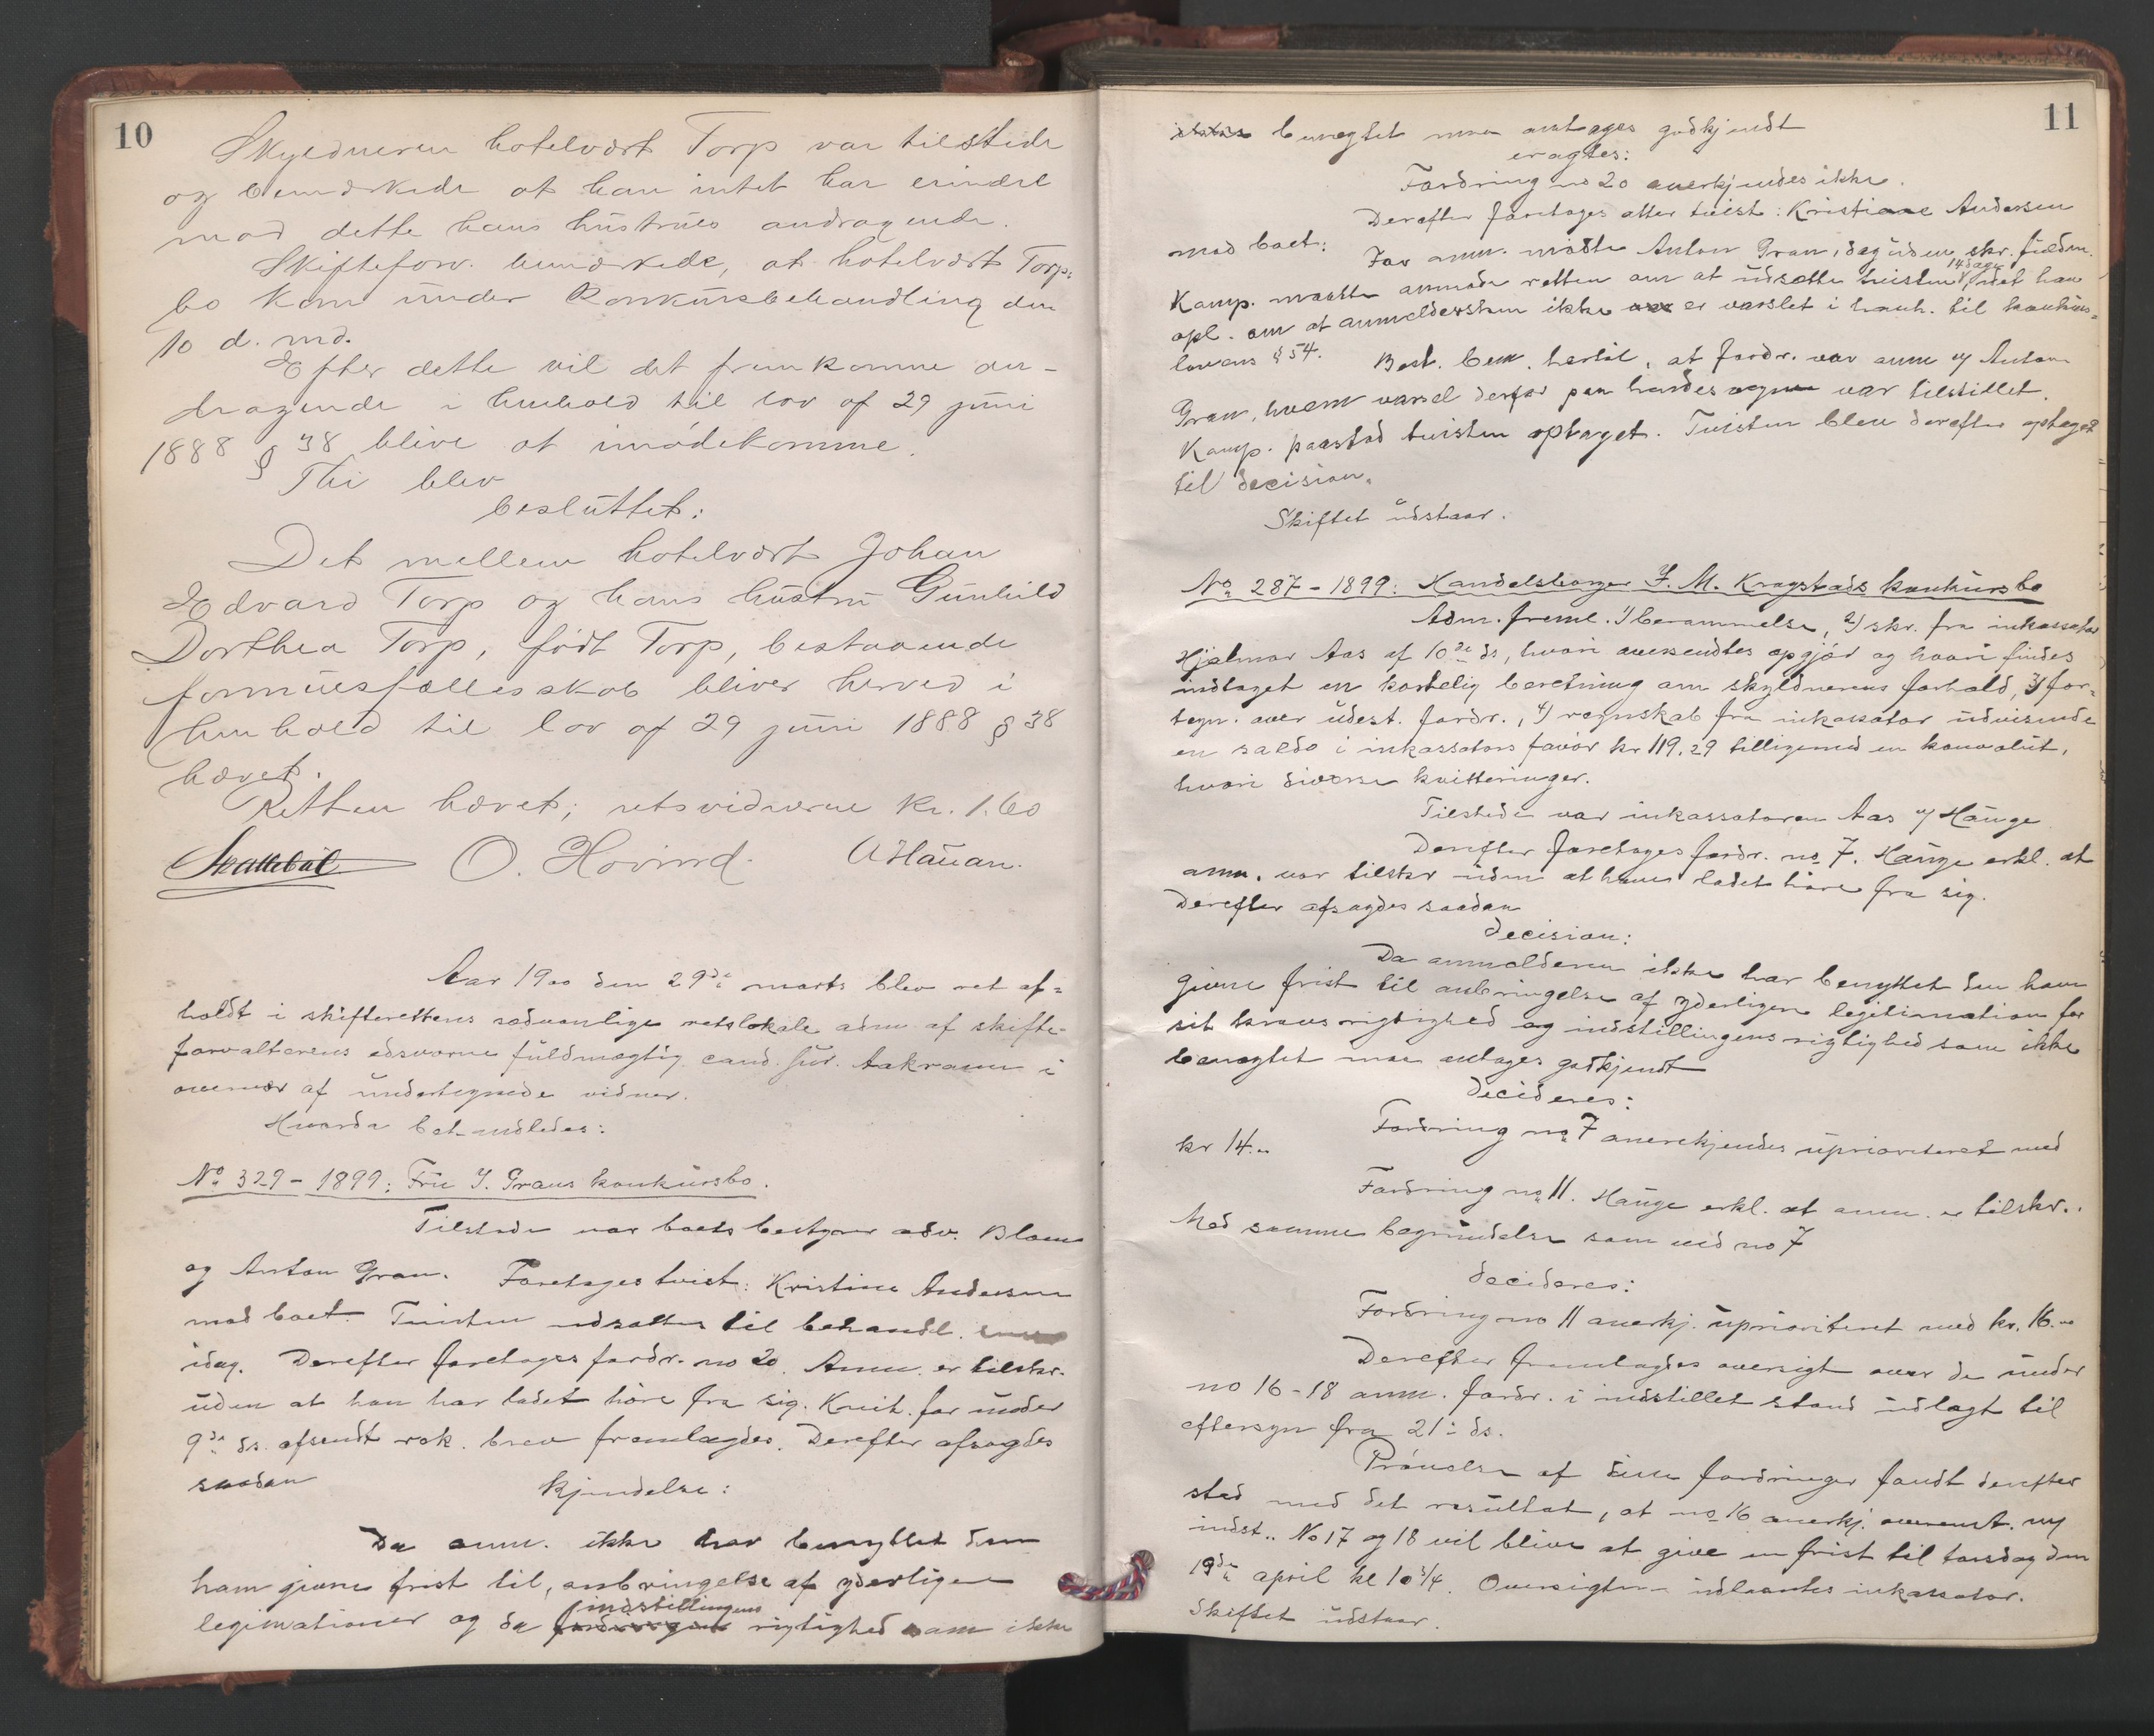 10
Skyldneren hotelvært Torp var tilstede
og bemærkede at han intet har erindre
mod dette hans hustrues andragende.
Skifteforv. bemærkede, at hotelvært Torps
bo kom under Konkursbehandling den
10 d. md.
Efter dette vil det fremkomne an-
dragende i henhold til lov af 29 juni
1888 § 38 blive at imødekomme.
Thi blev
besluttet:
Det mellem hotelvært Johan
Edvard Torp og hans hustru Gunhild
Dorthea Torp, født Torp, bestaaende
formuesfællesskab bliver herved i
henhold til lov af 29 juni 1888 § 38
hævet.
Retten hævet; retsvidnerne kr. 1.60
Skattebøl O. Hovind. A Hauan.
Aar 1900 den 29de marts blev ret af-
holdt i skifterettens sædvanlige retslokale adm. af skifte-
forvalterens edsvorne fuldmægtig cand. jur. Aakrann i
overvær af undertegnede vidner.
Hvorda behandledes:
No 329 - 1899: Fru J. Grans konkursbo.
Tilstede var boets bestyrer adv. Blom
og Anton Gran. Foretages tvist: Kristine Andersen
mod boet. Tvisten udsattes til behandl.
idag. Derefter foretages fordr. no 20. Anm. er tilskr.
uden at han har ladet høre fra sig. Kvit. for under
9de ds. afsendt rek. brev fremlægdes. Derefter afsagdes
saadan kjendelse:
Da anm. ikke har benyttet den
ham givne frist til, anbringelse af yderligere
legimationer og da fordringens indstillingens rigtighed som ikke
11
benegtet maa antages godkjendt
eragtes:
Fordring no 20 anerkjendes ikke.
Derefter foretages atter tvist: Kristiane Andersen
mod boet: For anm. mødte Anton Gran, dog uden skr. fuldm.
Komp. maatte anmode retten om at udsætte tvisten 14 dage, idet han
opl. om at anmeldersken ikke er varslet i henh. til konkurs-
lovens § 54. Best. bem. hertil, at fordr. var anm v/ Anton
Gran, hvem varsel derfor paa hendes vegne var tilstillet.
Komp. paastod tvisten optaget. Tvisten blev derefter optaget
til decision.
Skiftet udstaar.
No 287 - 1899: Handelsborger J. M. Kragstads konkursbo
Adm. freml. 1) berammelse, 2) skr. fra inkassator
Hjalmar Aas af 10de ds, hvori oversendtes opgjør og hvori findes
indtaget en kortelig beretning om skyldnerens forhold, 3) for-
tegn. over udest. fordr., 4) regnskab fra inkassator udvisende
en saldo i inkassators favør kr 119.29 tilligemed en konvolut,
hvori diverse kvitteringer.
Tilstede var inkassatoren Aas v/ Hauge
Derefter foretages fordr. no 7. Hauge erkl. at
anm. var tilskr uden at have ladet høre fra sig.
Derefter afsagdes saadan
decision:
Da anmelderen ikke har benyttet den ham
givne frist til anbringelse af yderligere legitimation for
sit kravs rigtighed og indstillingens rigtighed som ikke
benegtet maa antages godkjendt
decideres:
Fordring no 7 anerkjendes uprioriteret med
kr 14.-
Fordring no 11. Hauge erkl. at anm. er tilskr..
Med samme begrundelse som ved no 7
decideres:
Fordring no 11 anerkj. uprioriteret med kr. 16.-
Derefter fremlagdes oversigt over de under
no 16-18 anm. fordr. i indstillet stand udlagt til
eftersyn fra 21de ds.
Prøvelse af disse fordringer fandt derefter
sted med det resultat, at no 16 anerkj. overenst. m/
indst.. No 17 og 18 vil blive at give en frist til torsdag den
19de april kl 10 3/4. Oversigten udlaantes inkassator.
Skiftet udstaar.